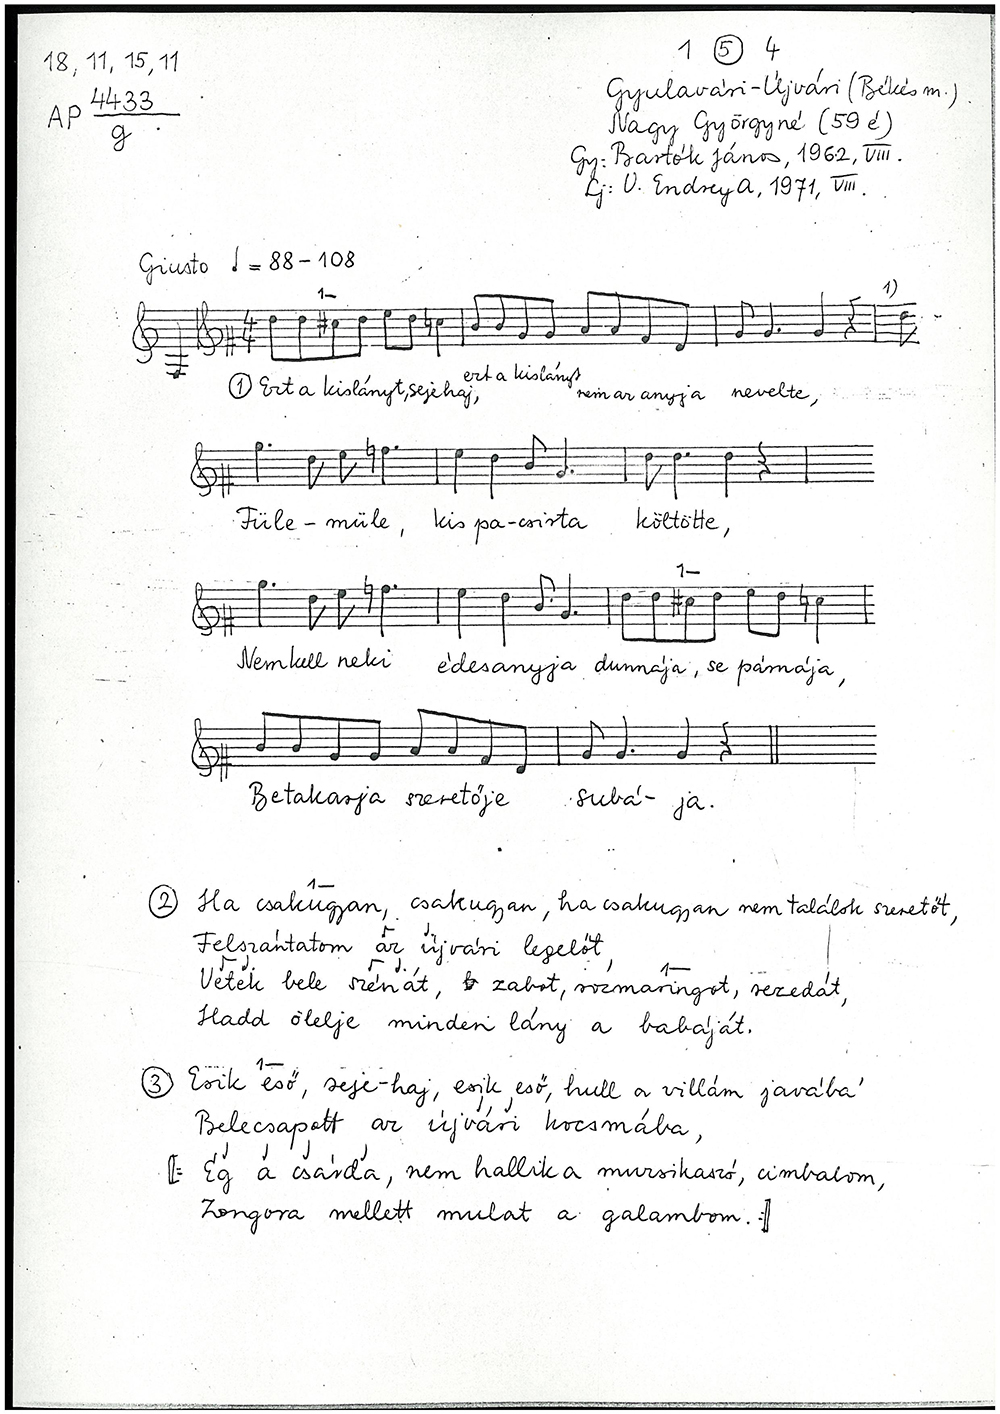 18, 11, 15, 11
1 5 4
AP 4433/g
Gyulavári-Újvári (Békés m.)
Nagy Györgyné (59 é)
Gy: Bartók János, 1962, VIII.
Lj: V. Endrey A, 1971, VIII.
Giusto ♩ = 88 – 108
1–
1)
4
4
① Ezt a kislányt, seje haj, ezt a kislányt nem az anyja nevelte,
Füle – müle, kis pa-csirta költötte,
1–
Nem kell neki édesanyja dunnája, se párnája,
Betakarja szeretője subá- ja.
1–
② Ha csakugyan, csakugyan, ha csakugyan nem találok szeretőt,
Felszántatom az újvári legelőt,
1–
Vetek bele szénát, zabot, rozmaringot, rezedát,
Hadd ölelje minden lány a babáját.
1–
③ Esik eső, seje-haj, esik eső, hull a villám javába'
Belecsapott az újvári kocsmába,
[: Ég a csárda, nem hallik a muzsikaszó, cimbalom,
Zongora mellett mulat a galambom. :]